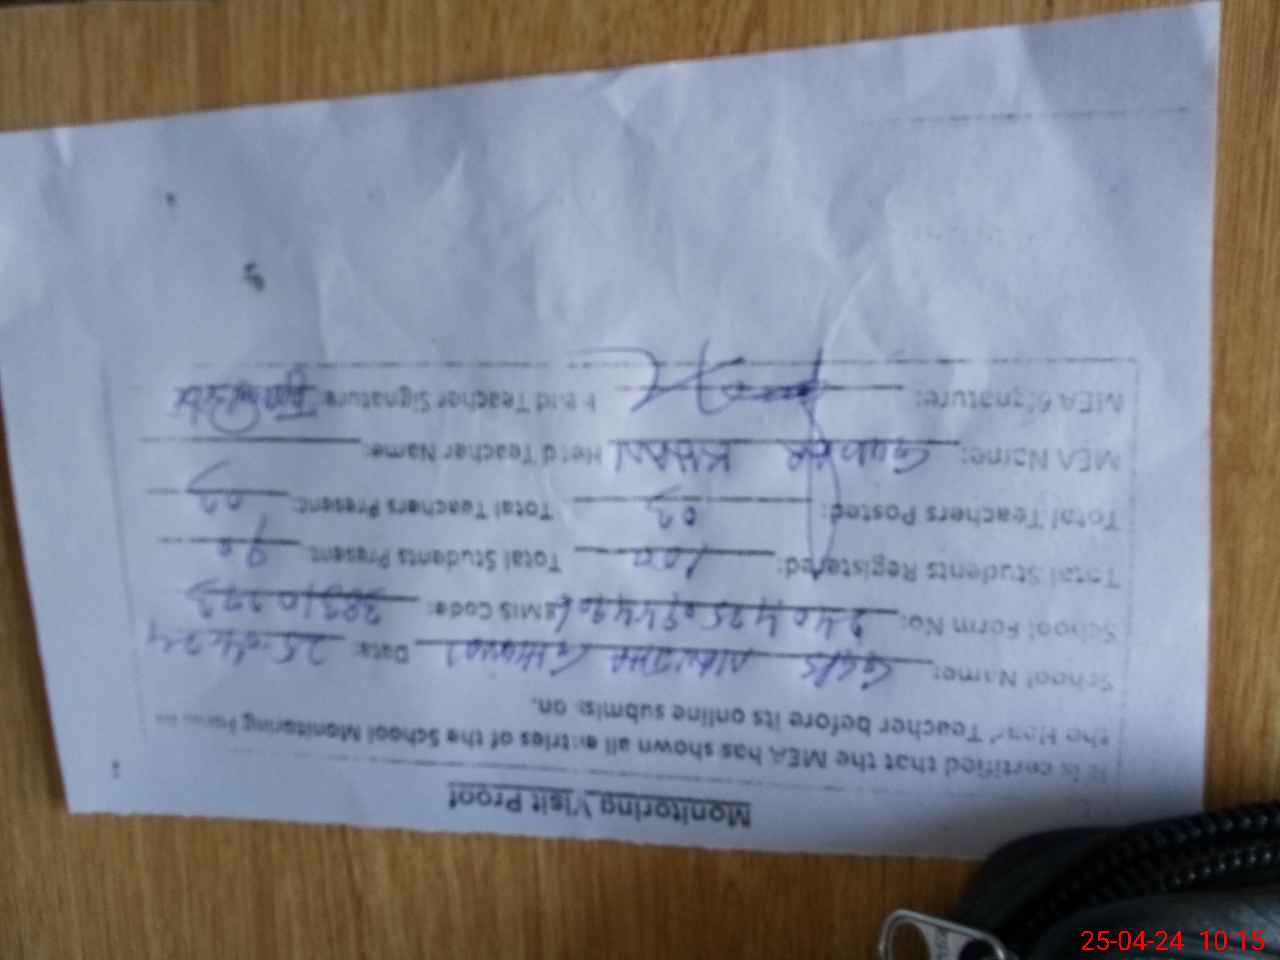 Monitoring Visit Proof
It is certified that the MEA has shown all entries of the School Monitoring
the Head Teacher before its online submission.
School Name: GGPS Date: 25-04-24
School Form No: EMIS Code: 38310373
Total Students Registered: 100 Total Students Present: 90
Total Teachers Posted: 03 Total Teachers Present: 03
MEA Name: KHAN Head Teacher Name:
MEA Signature: Head Teacher Signature:
25-04-24 10:15